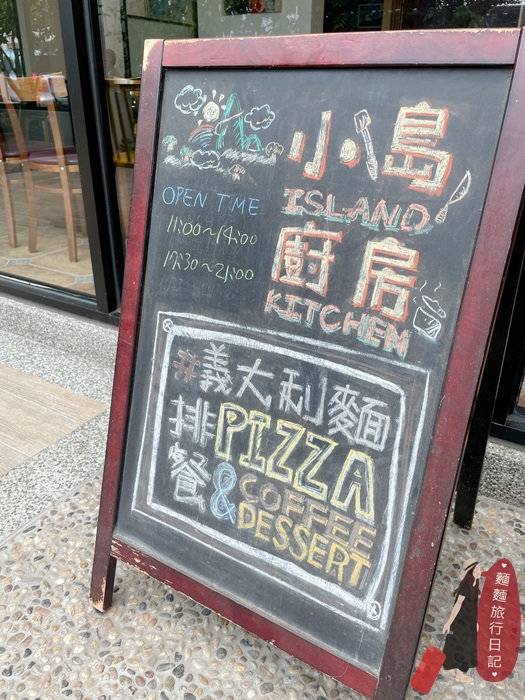 小島
ISLAND
廚房
KITCHEN
OPEN TIME
11:00~14:00
17:30~21:00
#義大利麵
排PIZZA
餐&COFFEE
DESSERT
麵麵旅行日記